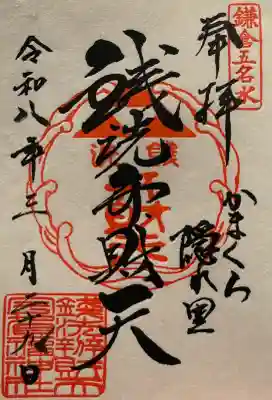 鎌倉五名水
奉拝
かまくら
隠れ里
銭洗弁財天
令和八年三月二十九日